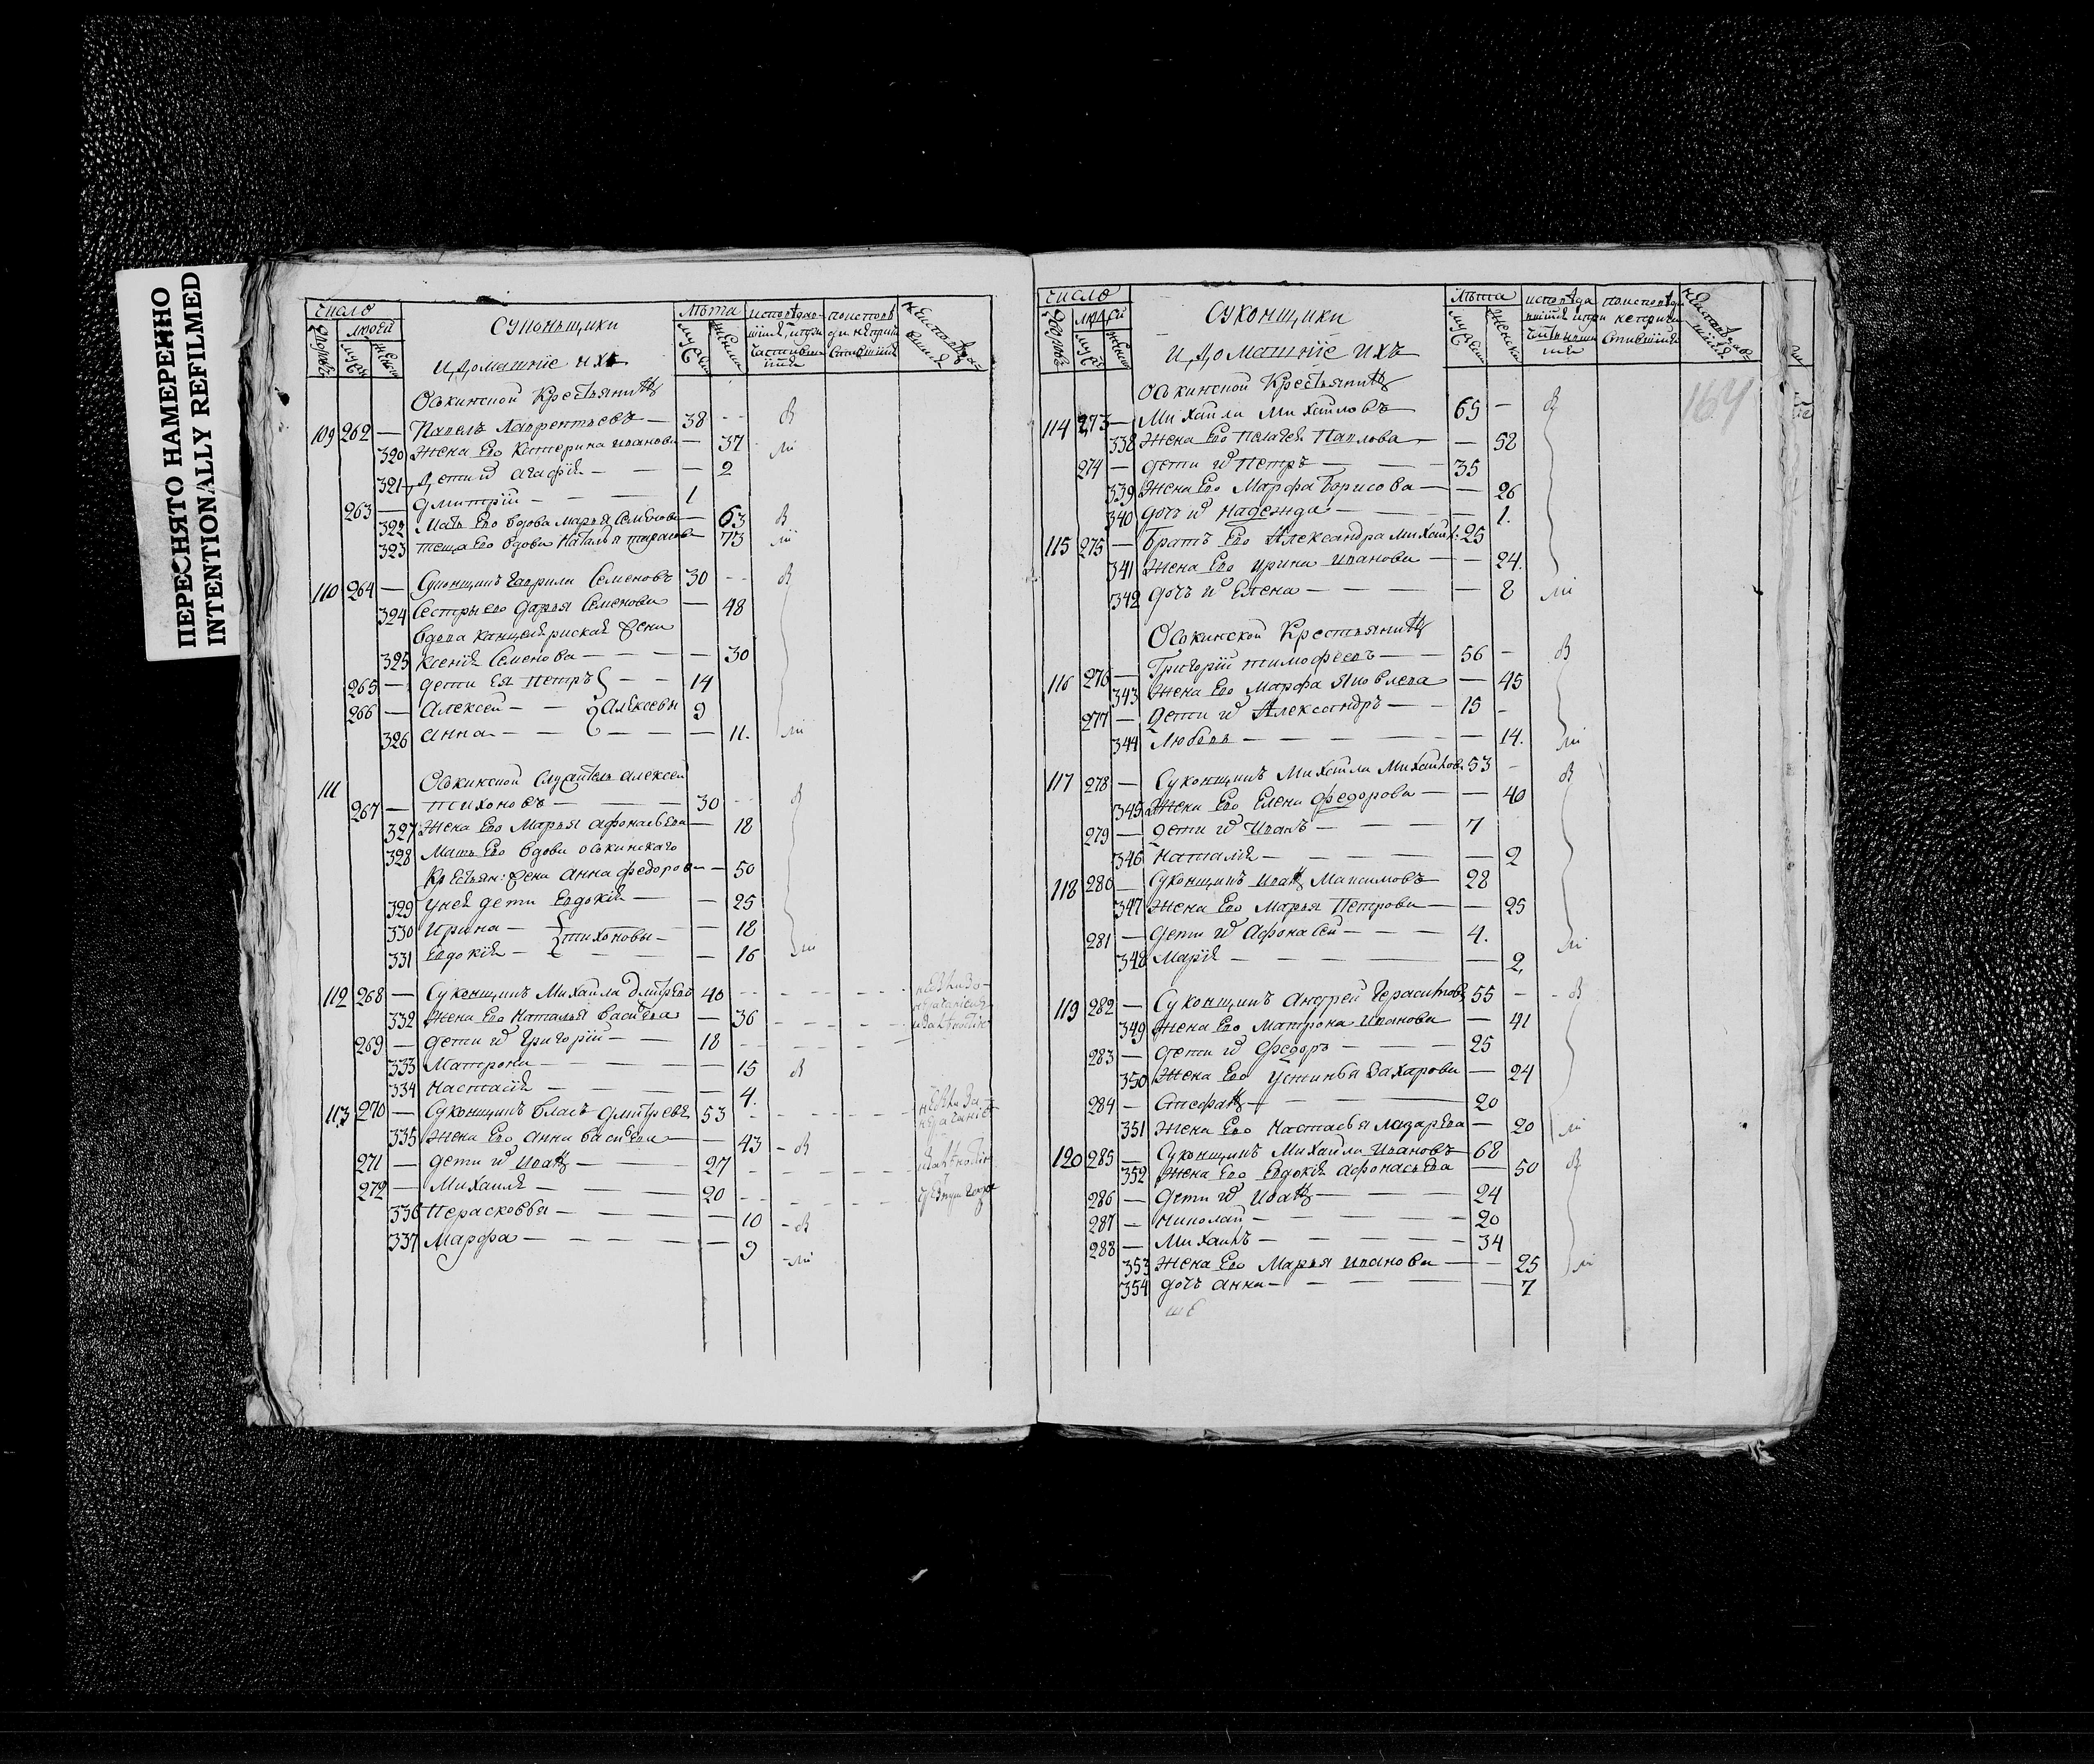 ПЕРЕСНЯТО НАМЕРЕННО
INTENTIONALLY REFILMED
число
людей
лѣта
Суконьщики
и домашніе ихъ
Осокинской Крестьянинъ
109 262 — Павелъ Лаврентьевъ — 38
320 Жена Его Катерина Иванова — 37
321 дети ѿ Агафія — — — 2
263 — Дмитрій — — — 1
322 Мать Его вдова Марья Семенова — 63
323 теща Его вдова Наталья Тарасова 73
110 264 — Суконщикъ Гаврила Семеновъ 30
324 Сестры его Дарья Семенова — 48
вдова
325 Ксенія Семенова — — — — 30
265 — дети Ея Петръ — — 14
266 — Алексей — — Алексевы 9
326 Анна — — — — — 11.
111 Осокинской Алексей
267 — тихоновъ — — — 30
327 Жена Его Марья Афонасьева — 18
328 Мать Его вдова осокинскаго
Крестьян: жена Анна Федорова — 50
329 у ней дети Евдокія — — 25
330 Ирина — тихоновы — — 18
331 Евдокія — — — — 16
112 268 — Суконщикъ Михайла Дмитревъ 40
332 Жена Его Наталья Васильева — 36
269 — дети ѿ Григорій — — 18
333 Матрона — — — — 15
334 Настасія — — — — 4.
113 270 — Суконщикъ Власъ Дмитревъ 53
335 Жена Его Анна Васильева — — 43
271 — дети ѿ Иванъ — — 27
272 — Михаила — — — 20
336 Перасковья — — — — 10
337 Марфа — — — — — 9
число
людей
лѣта
Суконщики
и домашніе ихъ
164
Осокинской Крестьянинъ
114 273 — Михайла Михайловъ — 65 —
338 Жена Его Пелагея Павлова — — 58
274 — дети ѿ Петръ — — — 35
339 Жена Его Марфа Борисова — — 26
340 дочь ѿ Надежда — — — — 1.
115 275 — братъ Его Александра Михайл: 25
341 Жена Его Ирина Иванова — — 24.
342 дочь ѿ Елена — — — — 8
Осокинской Крестьянинъ
116 276 — Григорій тимофеевъ — — 56 —
343 Жена Его Марфа Яковлева — 45
277 — дети ѿ Александръ — — 15 —
344 Любовь — — — — — 14.
117 278 — Суконщикъ Михайла Михайлов 53 —
345 Жена Его Елена Федорова — — 40
279 — дети ѿ Иванъ — — — 7
346 Наталія — — — — — 2
118 280 — Суконщикъ Иванъ Максимовъ 28
347 Жена Его Марья Петрова — — 25
281 — дети ѿ Афонасей — — — 4.
348 Марія — — — — — 2.
119 282 — Суконщикъ Андрей Герасимовъ 55 —
349 Жена Его Матрона Иванова — 41
283 — дети ѿ Федоръ — — — 25
350 Жена Его Устинья Захарова — 24
284 — Стефанъ — — — — 20
351 Жена Его Настасья Лазарева — 20
120 285 — Суконщикъ Михайла Ивановъ 68
352 Жена Его Евдокія Афонасьева — 50
286 — дети ѿ Иванъ — — — 24
287 — Николай — — — — 20
288 — Михаилъ — — — — 34
353 Жена Его Марья Иванова — — 25
354 дочь Анна — — — — 7